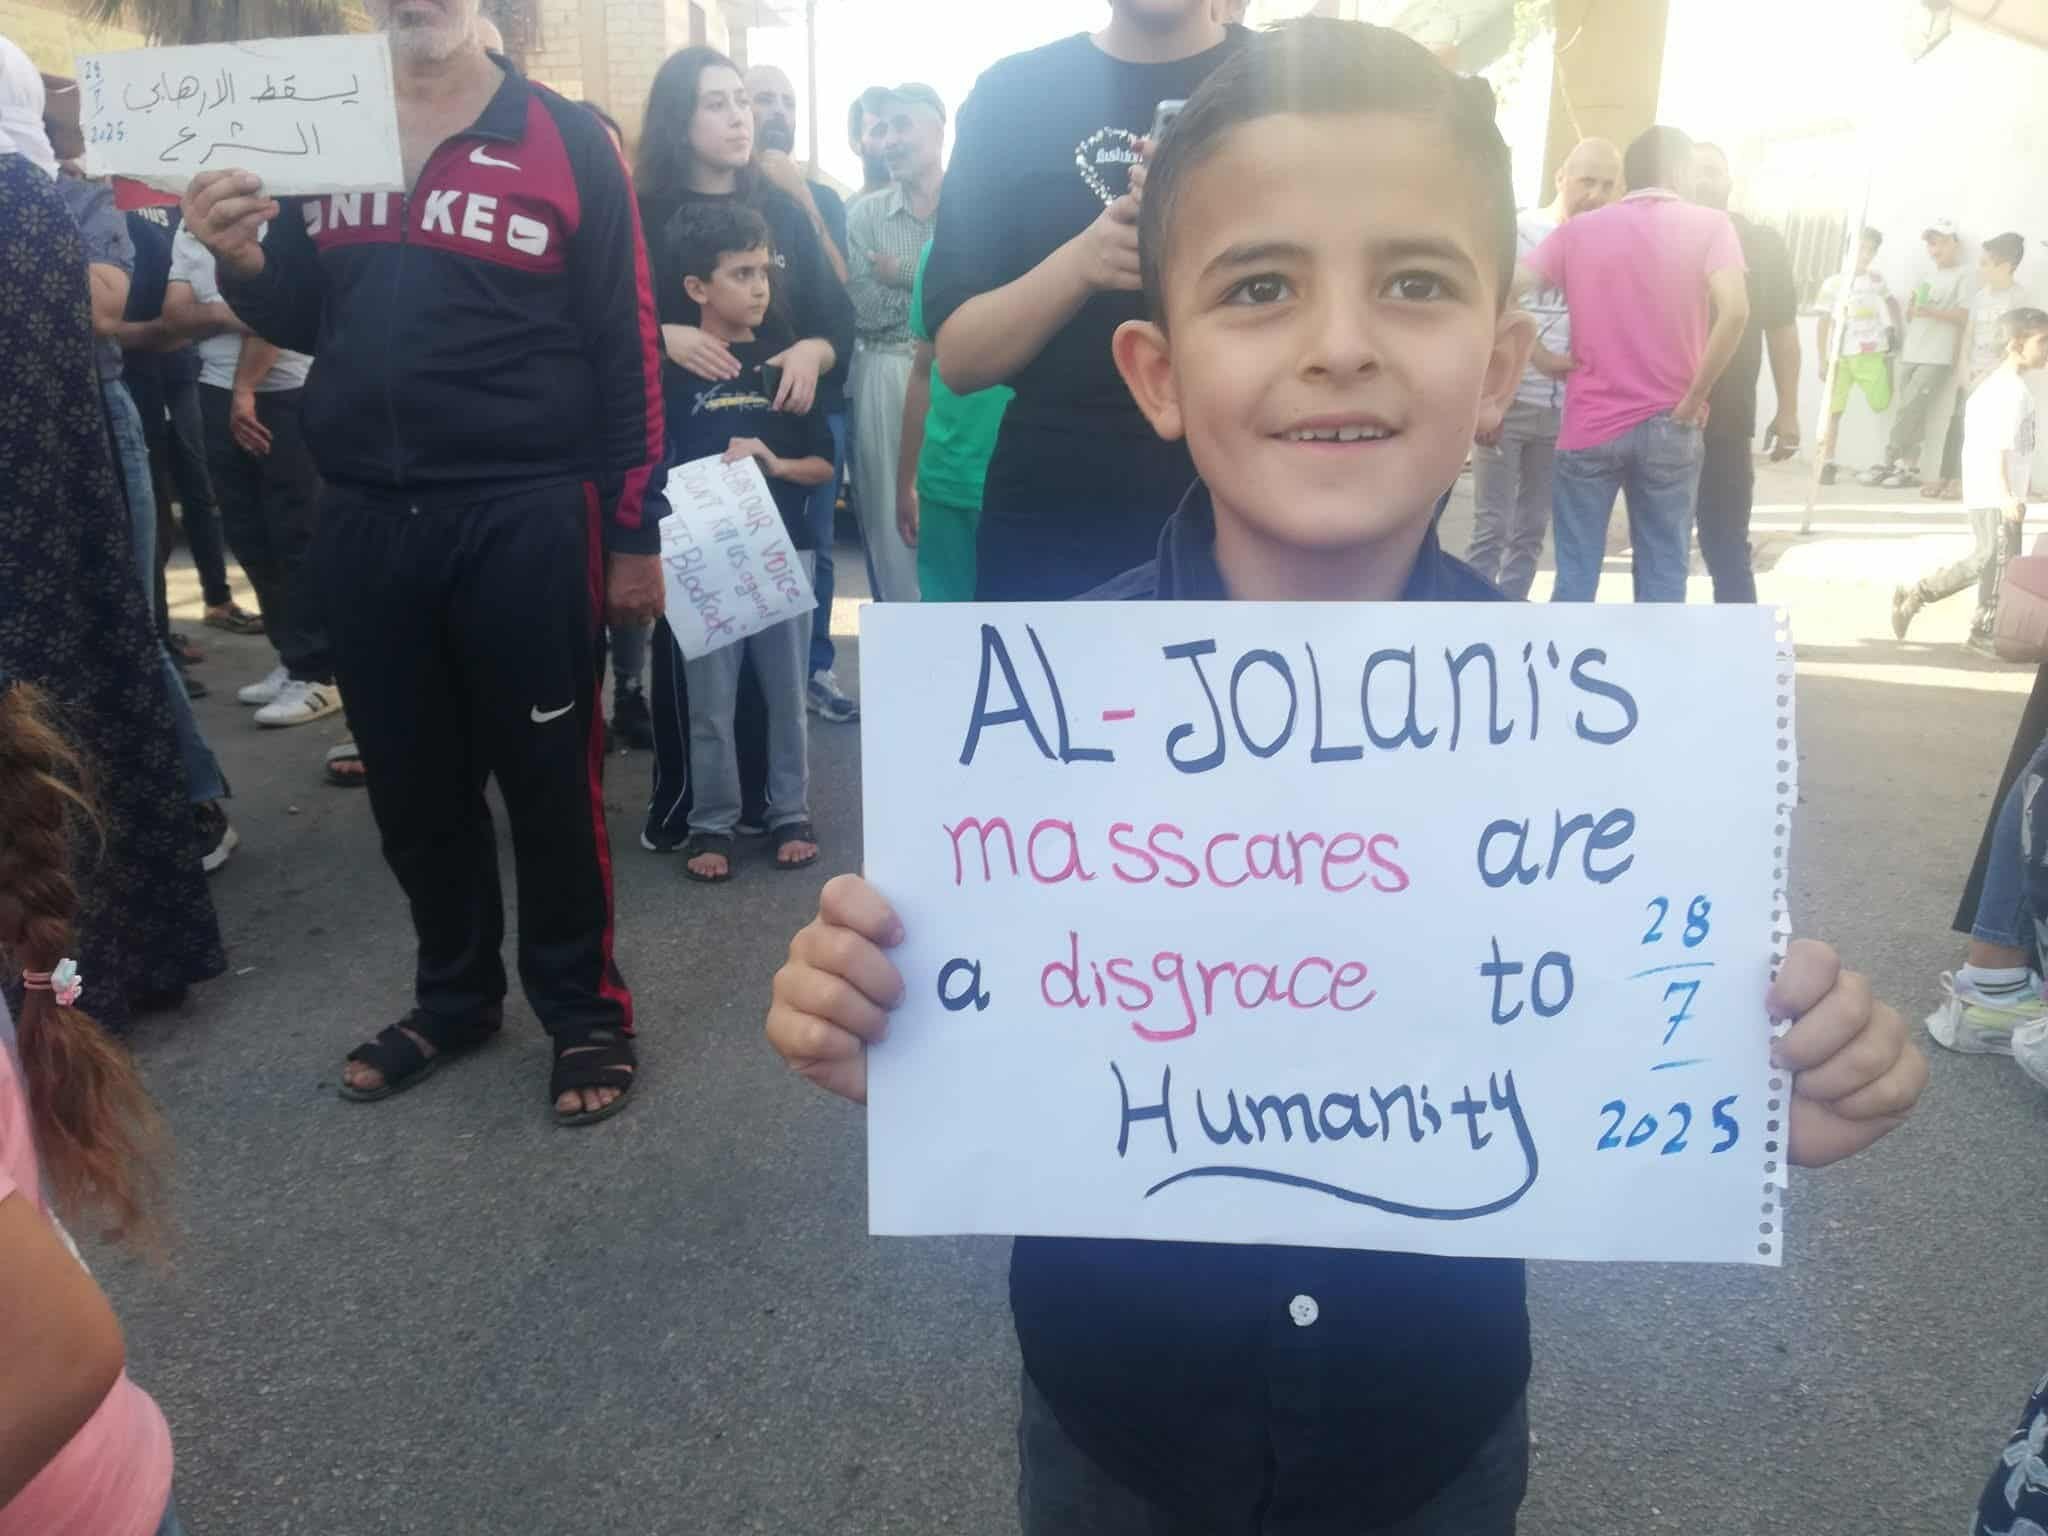 28
7
2025
يسقط الارهابي
الشرع
NIKE
fashion
HEAR OUR VOICE
DON'T Kill US again!
THE BLockade
AL-JOLani's
masscares are
a disgrace to
Humanity
28
7
2025